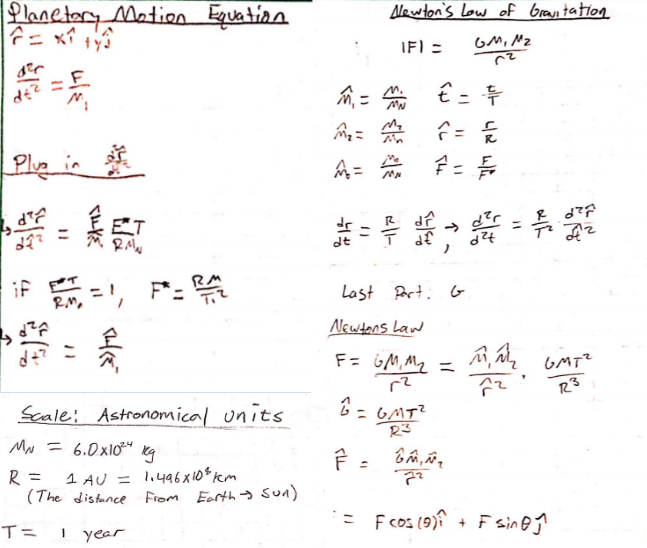 Planetary Motion Equation
r̂ = xî + yĵ
d²r/dt² = F/M₁
Plug in d²r̂/dt²
↳ d²r̂/dt̂² = F̂/M̂ F*T/RM_N
if F*T/RM₀ = 1, F* = RM/T²
↳ d²r̂/dt² = F̂/M̂₁
Scale: Astronomical units
M_N = 6.0x10²⁴ kg
R = 1 AU = 1.496x10⁸ km
(The distance from Earth → Sun)
T = 1 year
Newton's Law of Gravitation
|F| = GM₁M₂/r²
M̂₁ = M₁/M_N t̂ = t/T
M̂₂ = M₂/M_N r̂ = r/R
M̂₀ = M₀/M_N F̂ = F/F*
dr/dt = R/T dr̂/dt̂, → d²r/d²t = R/T² · d²r̂/dt̂²
Last Part: G
Newtons Law
F = GM₁M₂/r² = M̂₁M̂₂/r̂² · GMT²/R³
Ĝ = GMT²/R³
F̂ = ĜM̂₁M̂₂/r̂²
= Fcos(θ)î + Fsinθĵ